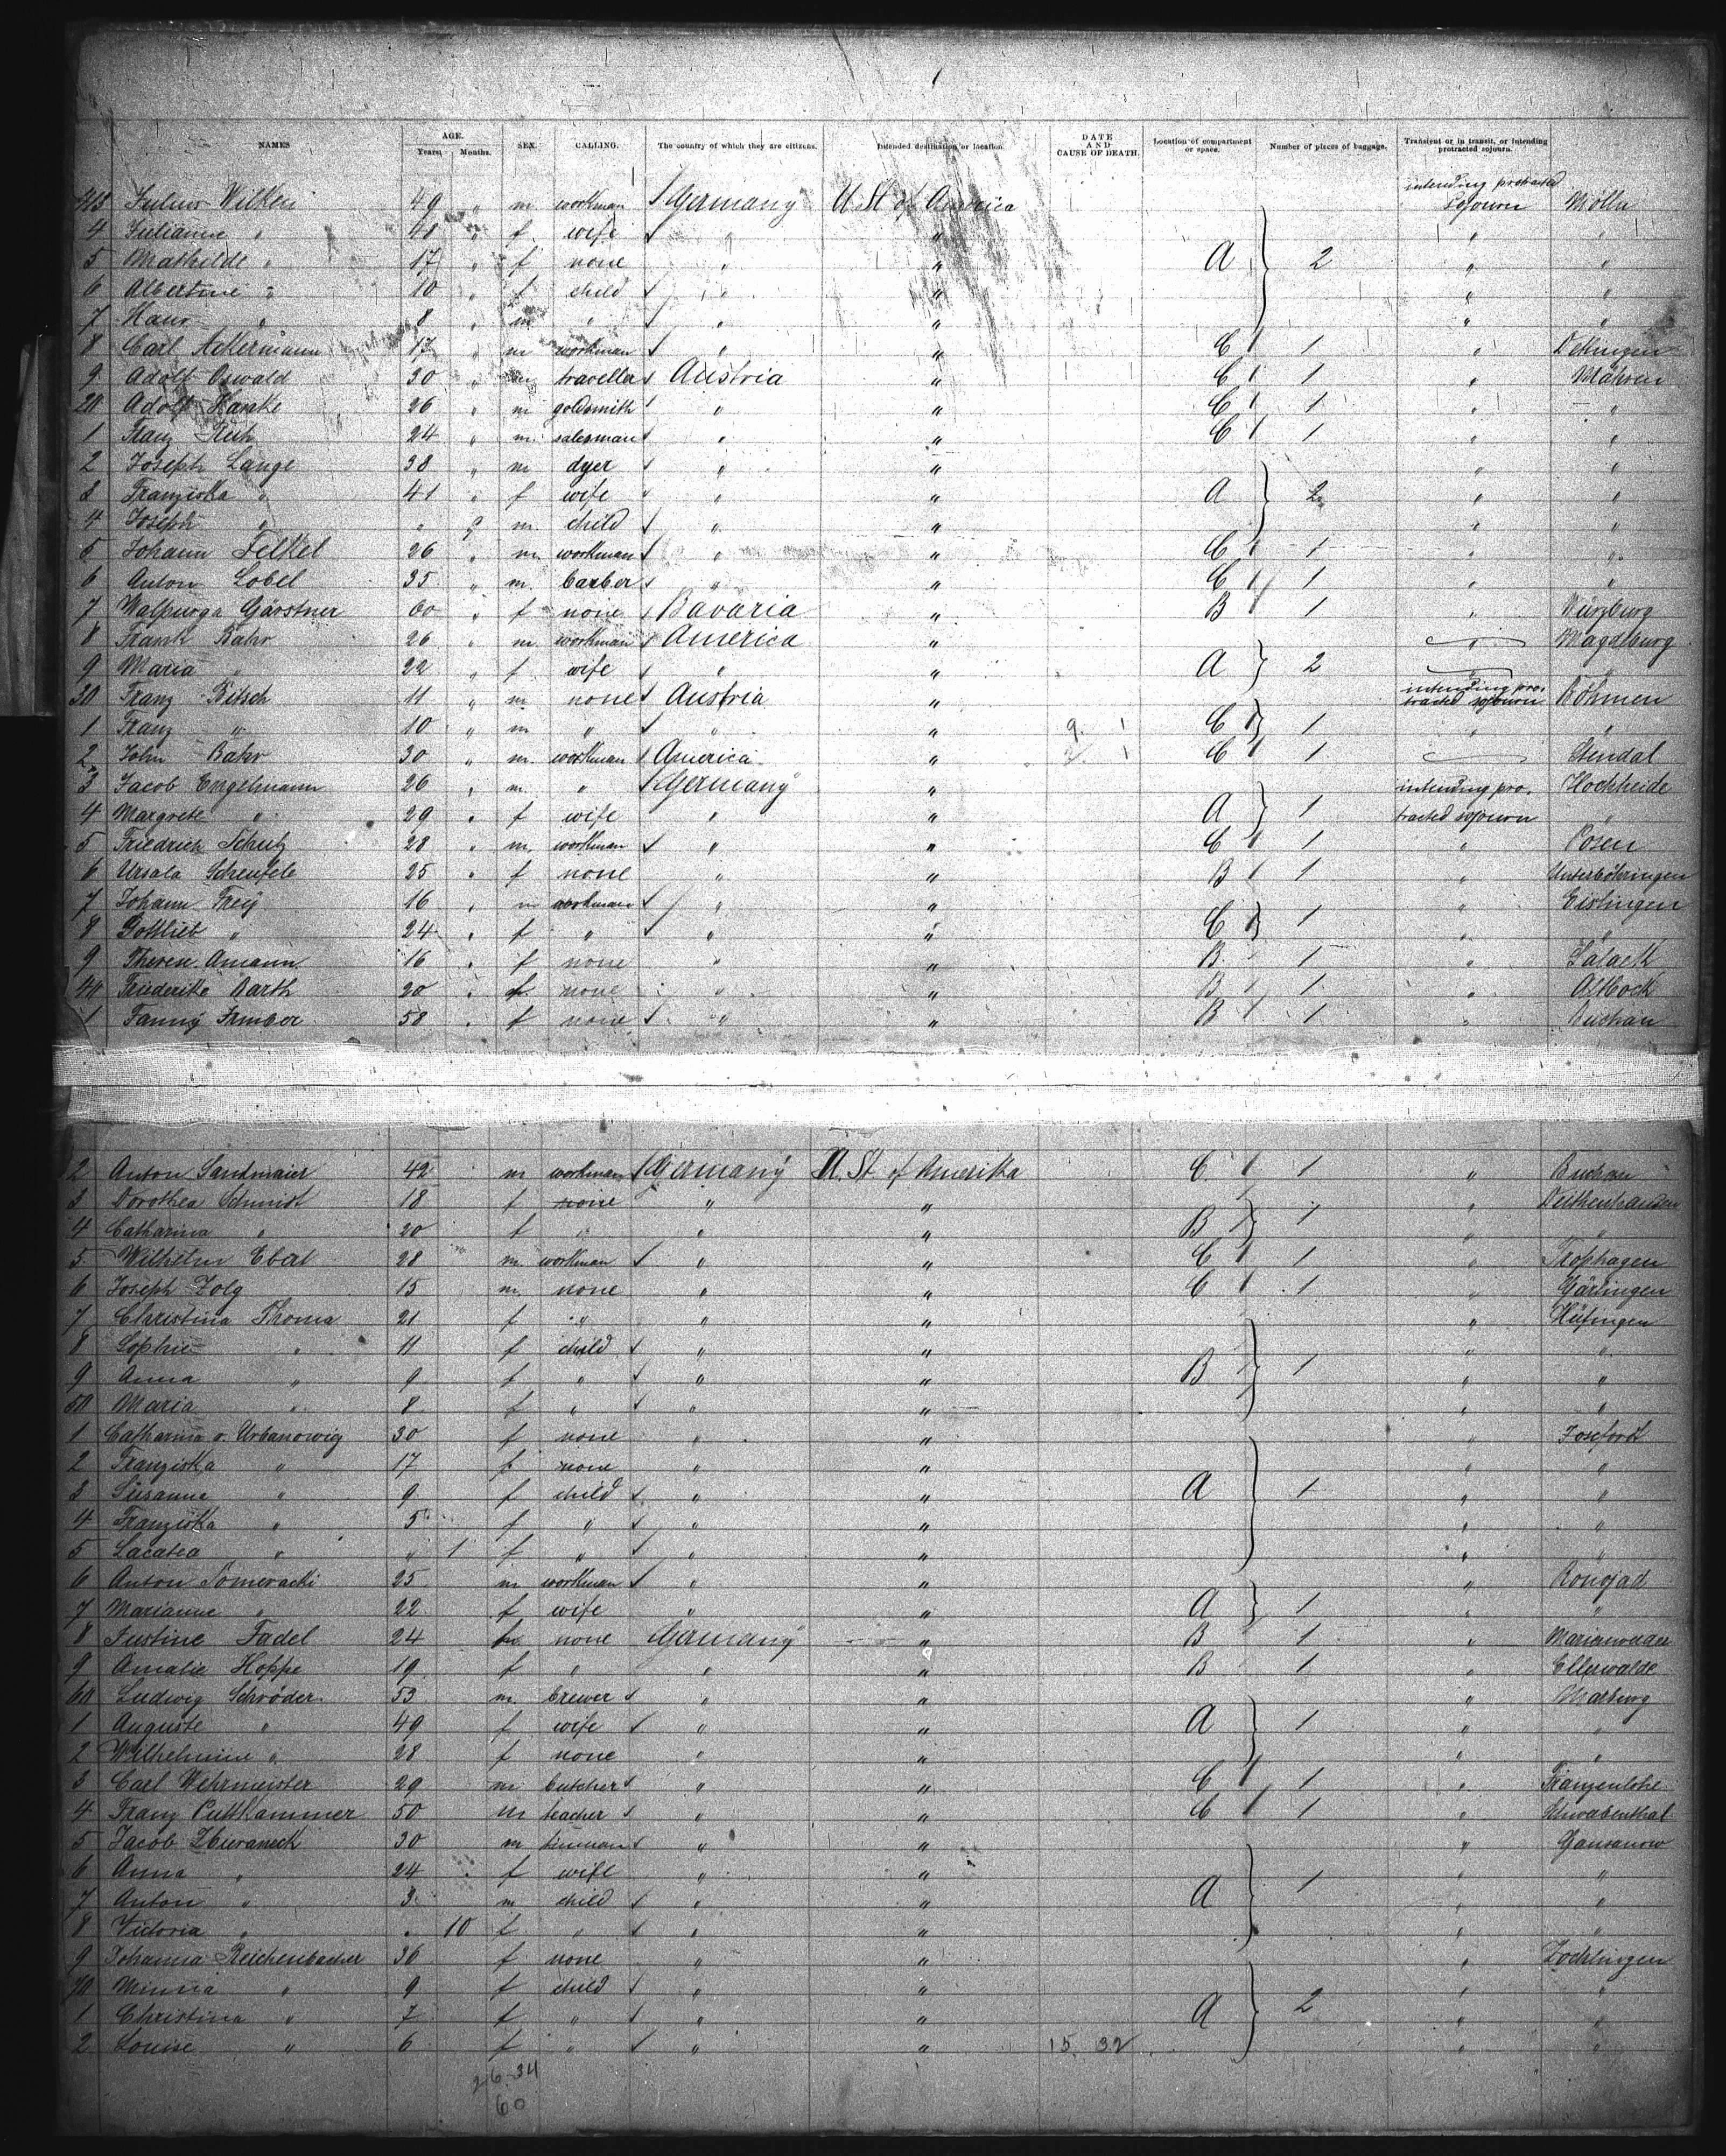 NAMES AGE. Years. Months. SEX. CALLING. The country of which they are citizens. Intended destination or location. DATE AND CAUSE OF DEATH. Location of compartment or space. Number of pieces of baggage. Transient or in transit, or intending protracted sojourn.
Wilken 49 " m workman Germany U. St. of America intending protracted sojourn Mölln
4 Julianne " 41 " f wife " " " "
5 Mathilde " 17 " f none " " A 2 " "
6 Albertine " 10 " f child " " " "
7 Hans " 8 " m " " " " "
8 Carl Ackermann 17 " m workman " " C 1 "
9 Adolf Oswald 30 " m traveller Austria " C 1 " Mähren
20 Adolf Hanke 26 " m goldsmith " " C 1 " "
1 Franz 24 " m salesman " " C 1 " "
2 Joseph Lange 38 " m dyer " " " "
3 Franziska " 41 " f wife " " A 2 " "
4 Joseph " " 9 m child " " " "
5 Johann Felkel 26 " m workman " " C 1 " "
6 Anton Lobel 35 " m barber " " C 1 " "
7 Walpurga Gärstner 60 " f none Bavaria " B 1 " Würzburg
8 Frank Bahr 26 " m workman America " " Magdeburg
9 Maria " 22 " f wife " " A 2 "
30 Franz Bitsch 11 " m none Austria " intending protracted sojourn Böhmen
1 Franz " 10 " m " " " 9 1 C 1 " "
2 John Bahr 30 " m workman America " 1 C 1 Stendal
3 Jacob Engelmann 26 " m " Germany " intending pro. Hochheide
4 Margrete " 29 " f wife " " A 1 tracted sojourn "
5 Friedrich Schulz 28 " m. workman " " C 1 " Posen
6 Ursala Scheufele 25 " f none " " B 1 " Unterböhringen
7 Johann Frey 16 " m workman " " " Eislingen
8 Gottlieb " 24 " f " " " C 1 " "
9 Therese Amann 16 " f none " " B 1 " Salach
40 Friederike Barth 20 " f none " " B 1 "
1 Fanny 58 " f none " " B 1 " Buchau
2 Anton Sandmaier 42 m workman Germany U. St. of Amerika C. 1 " Buchau
3 Dorothea Schmidt 18 f none " " 1 "
4 Catharina " 20 f " " " B " "
5 Wilhelm Ebert 28 m. workman " " C 1 " Trophagen
6 Joseph Zolg 15 m. none " " C 1 "
7 Christina Thoma 21 f " " " " Hüfingen
8 Sophie " 11 f child " " " "
9 Anna " 9 f " " " B 1 " "
50 Maria " 8 f " " " " "
1 Catharina v. Urbanowig 30 f none " " "
2 Franziska " 17 f none " " " "
3 Susanna " 9 f child " " A 1 " "
4 Franziska " 5 f " " " " "
5 " " 1 f " " " " "
6 Anton Pomeracki 25 m workman " " "
7 Marianne " 22 f wife " " A 1 " "
8 Justine Fadel 24 none Germany " B 1 "
9 Amalie Hoppe 19 f " " " B 1 " Ellerwalde
60 Ludwig Schröder 53 m. brewer " " " Marburg
1 Auguste " 49 f wife " " A 1 " "
2 Wilhelmine " 28 f none " " " "
3 Carl Wehrmeister 29 m butcher " " C 1 "
4 Franz Puttkammer 50 m teacher " " C 1 " Schwabenthal
5 Jacob 30 m " " "
6 Anna " 24 f wife " " " "
7 Anton " 3 m child " " A 1 " "
8 Victoria " " 10 f " " " " "
9 Johanna Reichenbacher 36 f none " " "
70 Minna " 9 f child " " " "
1 Christina " 7 f " " " A 2 " "
2 Louise " 6 f " " " 15. 32 " "
26 34
60